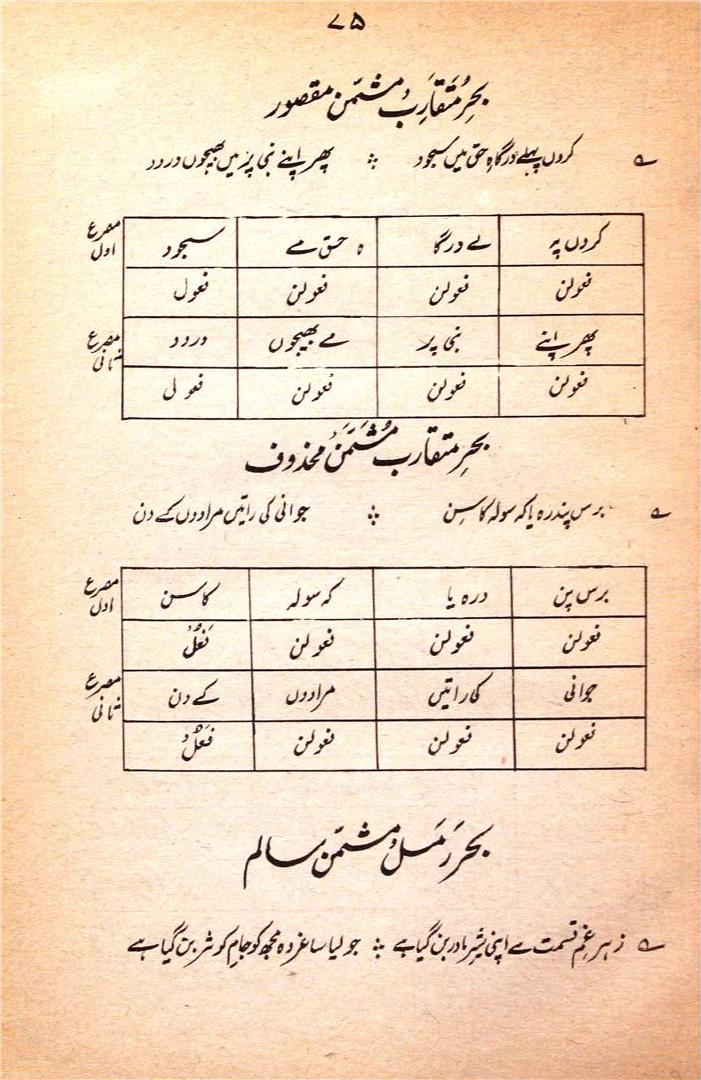 ۷۵
بحرِ مُتَقارِبْ مثمّن مقصور
؎ کروں پہلے درگاہِ حق میں سجود ؛ پھر اپنے نبی پر میں بھیجوں درود
مصرع اول کروں پہ لے درگا ہ حق مے سجود
فعولن فعولن فعولن فعول
مصرع ثانی پھر اپنے نبی پر مے بھیجوں درود
فعولن فعولن فعولن فعول
بحرِ متقارب مُثَمَّن محذوف
؎ برس پندرہ یا کہ سولہ کا سِن ؛ جوانی کی راتیں مرادوں کے دن
مصرع اول برس پن درہ یا کہ سولہ کا سن
فعولن فعولن فعولن فَعَلْ
مصرع ثانی جوانی کی راتیں مرادوں کے دن
فعولن فعولن فعولن فَعَلْ
بحر رَمَل مثمّن سالم
؎ زہر غم قسمت سے اپنی شیرِ مادر بن گیا ہے ؛ جو لیا ساغر وہ مجھ کو جامِ کوثر بن گیا ہے